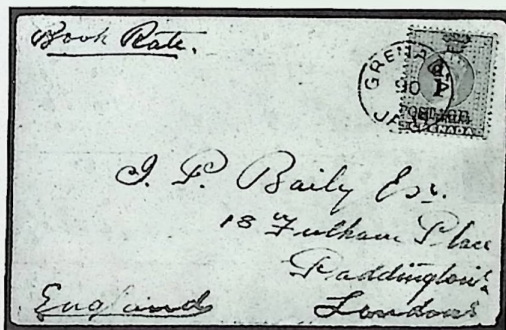 Book Rate.
GRENADA
90
JA
1
POSTAGE
GRENADA
J. P. Baily Esqr.
18 Fulham Place
Paddington
London
England